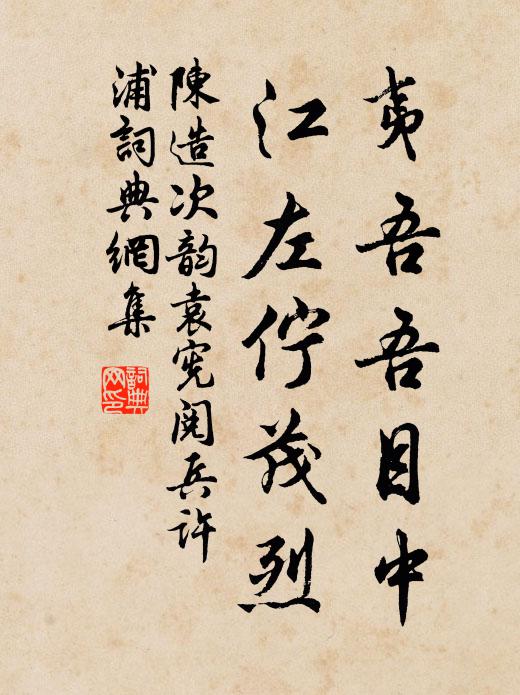 夷吾吾目中
江左佇茂烈
陳造次韵袁宪阅兵許
浦詞典網集
詞典网印